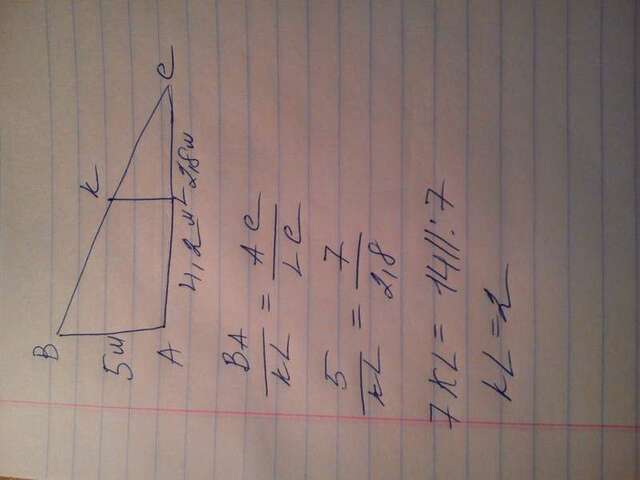 B
k
C
5м
A
4,2м L 2,8м
BA/KL = AC/LC
5/KL = 7/2,8
7KL = 14 //:7
KL = 2